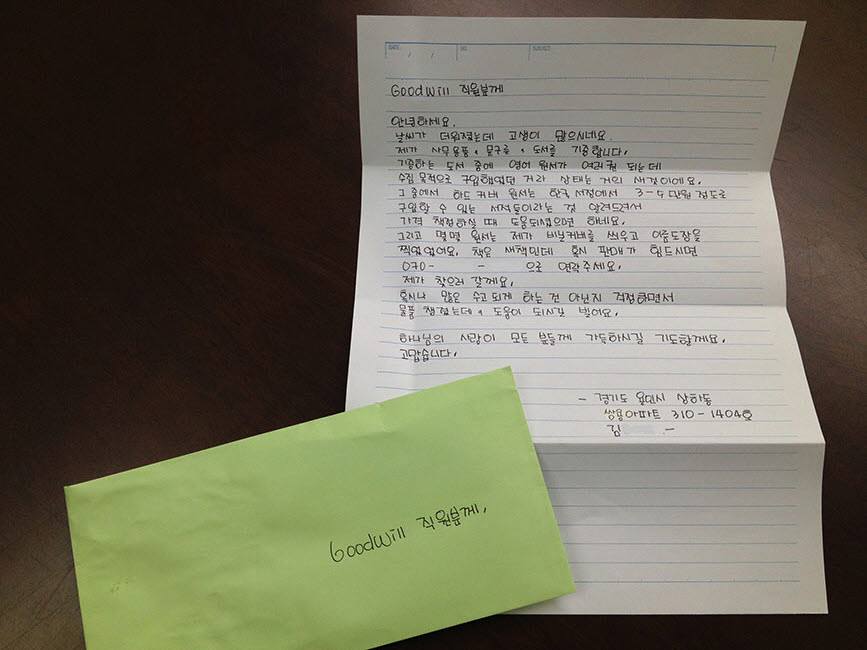 GoodWill 직원분께
안녕하세요.
날씨가 더워졌는데 고생이 많으시네요.
제가 사무용품, 문구류, 도서를 기증합니다.
기증하는 도서 중에 영어 원서가 여러권 되는데
수집 목적으로 구입했었던 거라 상태는 거의 새것이에요.
그 중에서 하드커버 원서는 한국 서점에서 3-5만원 정도로
구입할 수 있는 서적들이라는 것 알려드려서
가격 책정하실 때 도움되셨으면 하네요.
그리고 몇몇 원서는 제가 비닐커버를 씌우고 이름도장을
찍었었어요. 책은 새책인데 혹시 판매가 힘드시면
070- - 으로 연락주세요.
제가 찾으러 갈께요.
혹시나 많은 수고 되게 하는 건 아닌지 걱정하면서
물품 챙겼는데, 도움이 되시길 빌어요.
하나님의 사랑이 모든 분들께 가득하시길 기도할께요.
고맙습니다.
- 경기도 용인시 상하동
쌍용아파트 310-1404호
김 -
GoodWill 직원분께,